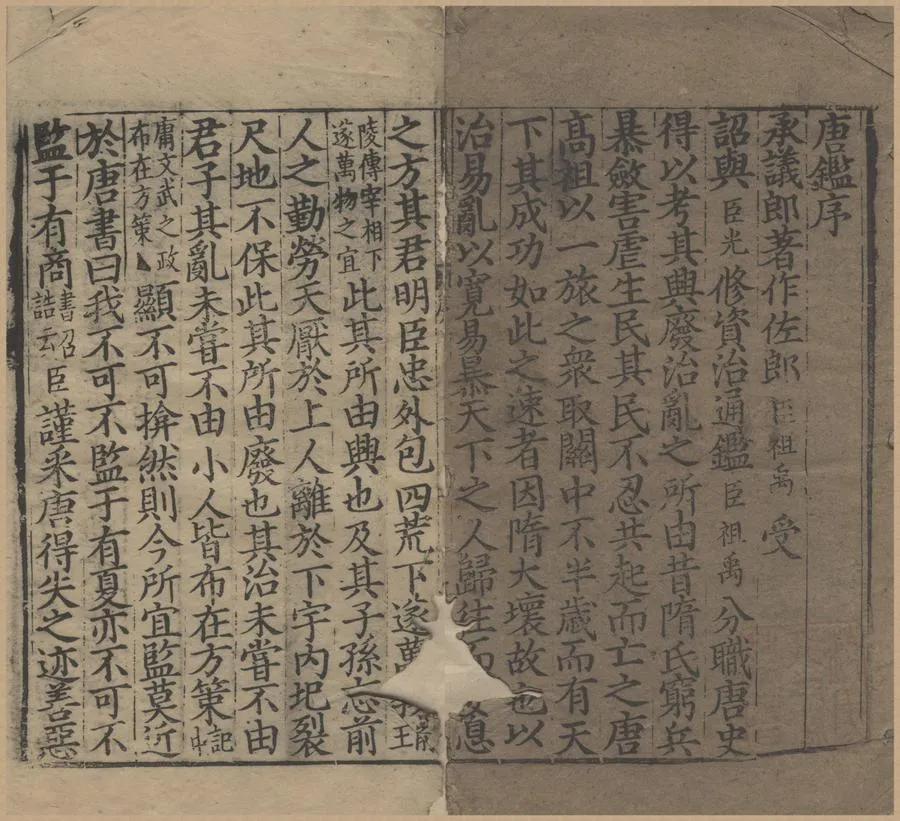 唐鑑序
承議郎著作佐郎臣祖禹 受
詔與臣光修資治通鑑臣祖禹分職唐史
得以考其興廢治亂之所由昔隋氏窮兵
暴斂害虐生民其民不忍共起而亡之唐
髙祖以一旅之衆取關中不半歳而有天
下其成功如此之速者因隋大壞故也以
治易亂以寛易暴天下之人歸而息
之方其君明臣忠外包四荒下遂萬王
陵傳宰相下遂萬物之宜此其所由興也及其子孫忘前
人之勤勞天厭於上人離於下宇内圯裂
尺地不保此其所由廢也其治未嘗不由
君子其亂未嘗不由小人皆布在方策記中
庸文武之政布在方策顯不可揜然則今所宜監莫近
於唐書曰我不可不監于有夏亦不可不
監于有商書召誥云臣謹采唐得失之迹善惡